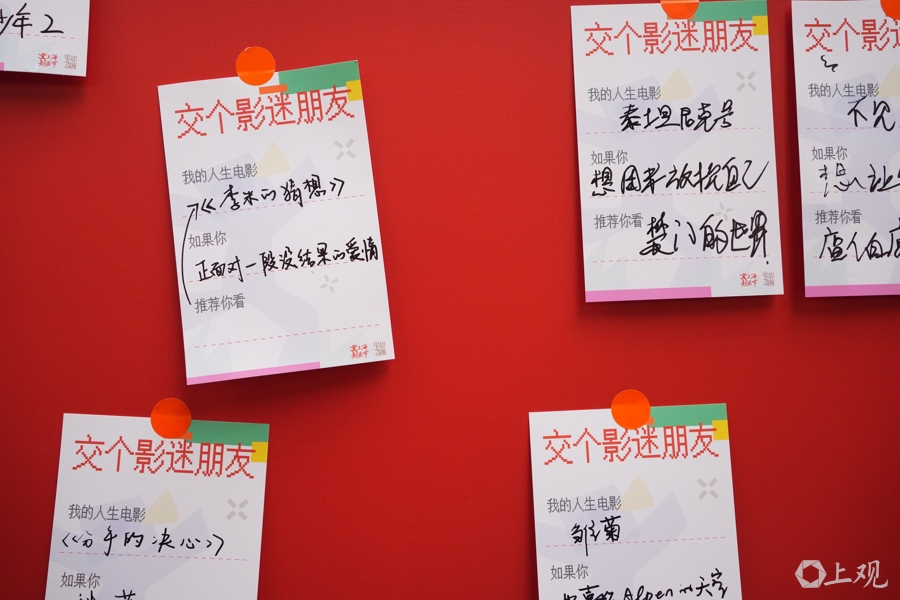 少年2
交个影迷朋友
我的人生电影
《李米的猜想》
如果你
正面对一段没结果的爱情
推荐你看
交个影迷朋友
我的人生电影
泰坦尼克号
如果你
想困兽放梳自己
推荐你看
楚门的世界!
交个影迷
我的人生电影
不见
如果你
想让
推荐你看
卢伯
交个影迷朋友
我的人生电影
《分手的决心》
如果你
交个影迷朋友
我的人生电影
邹菊
如果你
上观